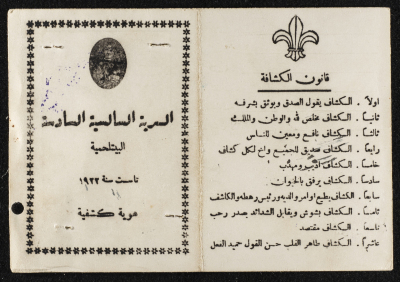 السرية السالسية السادسة
البيتلحمية
تأسست سنة ١٩٢٢
هوية كشفية
قانون الكشافة
اولاً . الكشاف يقول الصدق ويوثق بشرفه
ثانياً . الكشاف مخلص لله والوطن
ثالثاً . الكشاف نافع ومعين للناس
رابعاً . الكشاف صديق للجميع واخ لكل كشاف
خامساً . الكشاف أديب ومهذب
سادساً . الكشاف يرفق بالحيوان
سابعاً . الكشاف يطيع اوامر والديه ورئيس رهطه والكاشف
ثامناً . الكشاف بشوش ويقابل الشدائد بصدر رحب
تاسعاً . الكشاف مقتصد
عاشراً . الكشاف طاهر القلب حسن القول حميد الفعل